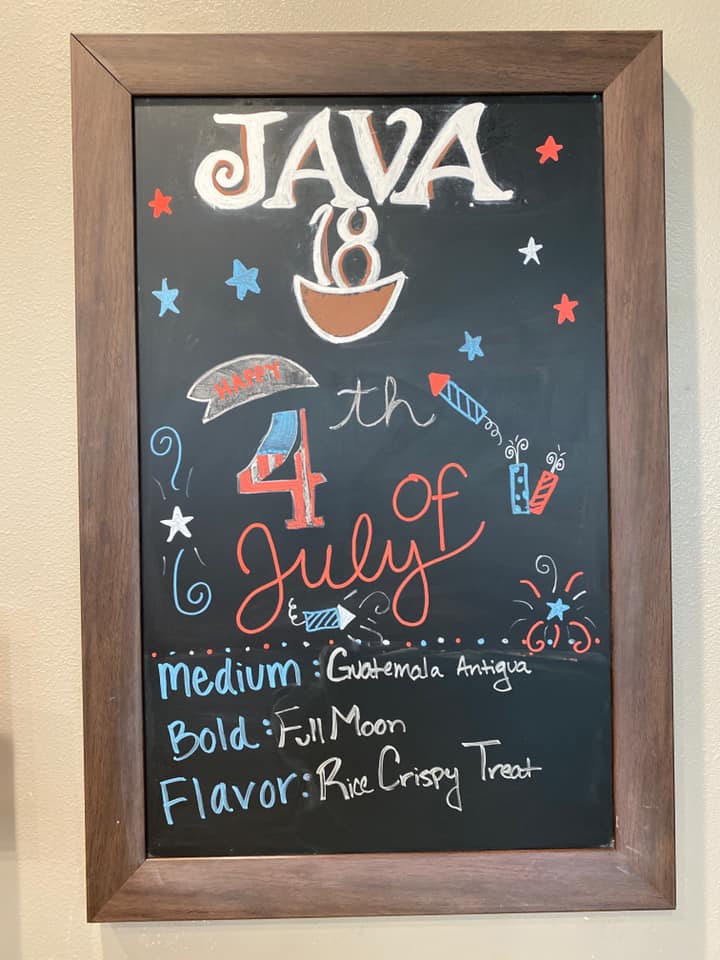 JAVA
18
HAPPY
4th
of
July
Medium: Guatemala Antigua
Bold: Full Moon
Flavor: Rice Crispy Treat